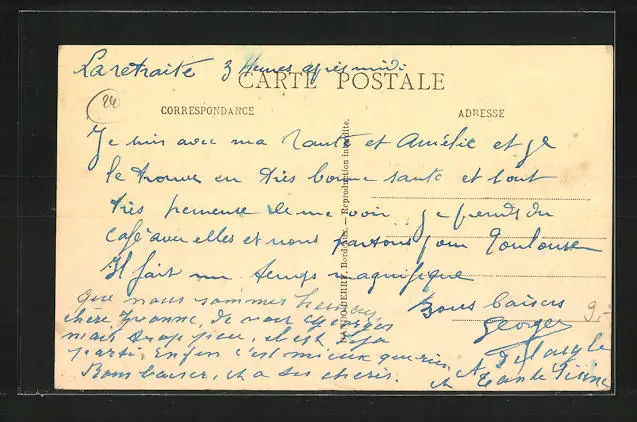 La retraite 3 heures après midi
CARTE POSTALE
24
CORRESPONDANCE
ADRESSE
Je suis avec ma Tante et Amélie et je
le trouve en très bonne santé et tout
très heureuse de me voir. Je prends du
café avec elles et nous partons pour Toulouse
Il fait un temps magnifique
Bons baisers
Georges
9,-
que nous sommes heureux
chère Yvonne, de voir Georges
mais trop peu, il est déjà
parti, Enfin c'est mieux que rien
Bons baisers, et a tes chéris.
et Tante
Bordeaux. — Reproduction interdite.